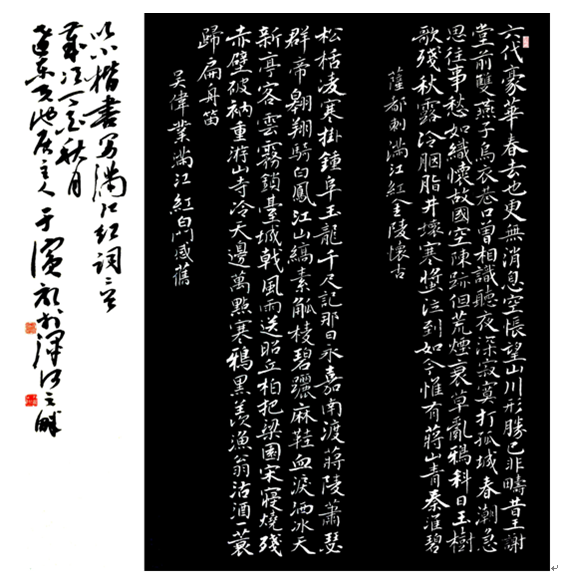 六代豪華春去也更無消息空悵望山川形勝已非疇昔王謝
堂前雙燕子烏衣巷口曾相識聽夜深寂寞打孤城春潮急
思往事愁如織懷故國空陳跡但荒煙衰草亂鴉斜日玉樹
歌殘秋露冷胭脂井壞寒螿泣到如今惟有蔣山青秦淮碧
薩都剌滿江紅金陵懷古
松栝凌寒掛鍾阜玉龍千尺記那日永嘉南渡蔣陵蕭瑟
群帝翱翔騎白鳳江山縞素觚棱碧躧麻鞋血淚洒冰天
新亭客雲霧鎖臺城戟風雨送昭丘柏把梁園宋寢燒殘
赤壁破衲重游山寺冷天邊萬點寒鴉黑羨漁翁沽酒一蓑
歸扁舟笛
吳偉業滿江紅白門感舊
以小楷書寫滿江紅詞二首
歲次丁亥秋月
池居主人于濱於渾河之畔